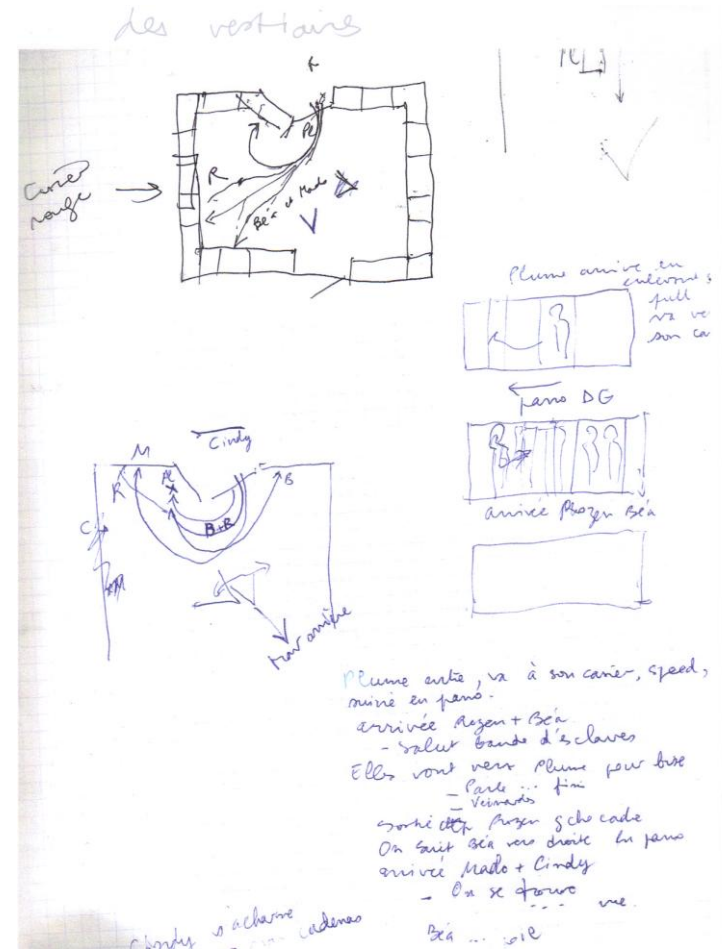 des vestiaires
Pl
R
Béa et Mado
Casier
rouge
Plume arrive en
full
son ca
pano DG
arrivée Rozen Béa
Cindy
M
R
Pl
B+R
B
C
trav arrière
Plume entre, va à son casier, speed,
suivie en pano.
arrivée Rozen + Béa
- Salut bande d'esclaves
Elles vont vers Plume pour bise
- Parle ... fini
- Veinardes
sortie Rozen gche cadre
On suit Béa vers droite en pano
arrivée Mado + Cindy
- On se trouve
... vue.
Cindy s'acharne
cadenas
Béa ...